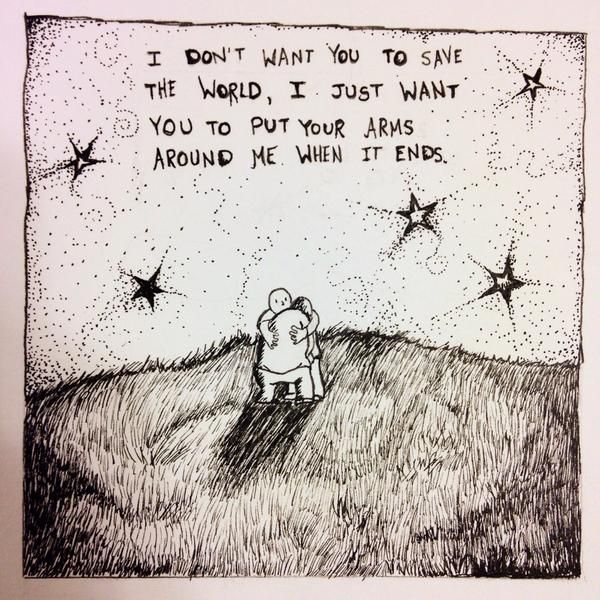 I DON'T WANT YOU TO SAVE
THE WORLD, I JUST WANT
YOU TO PUT YOUR ARMS
AROUND ME WHEN IT ENDS.